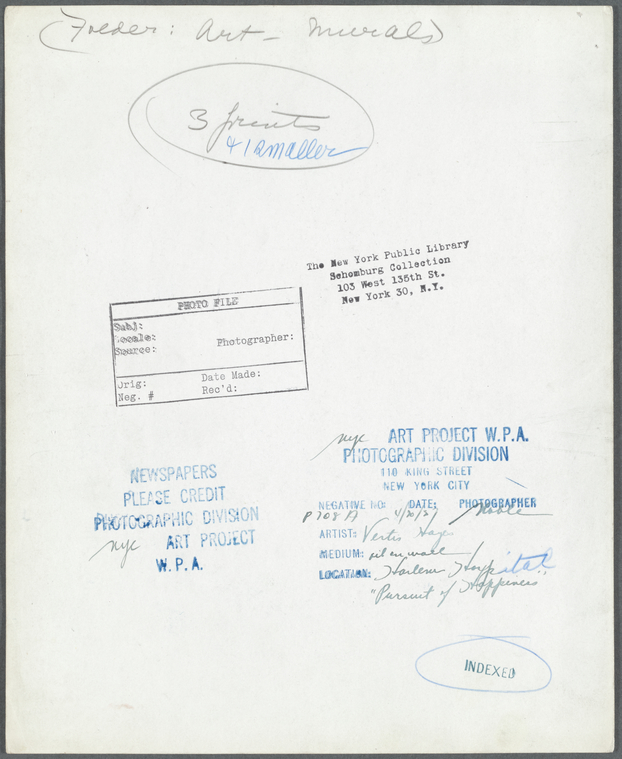 (Folder: Art - Murals)
3 prints
+ 1 smaller
The New York Public Library
Schomburg Collection
103 West 135th St.
New York 30, N.Y.
PHOTO FILE
Subj:
Locale:
Source:
Photographer:
Orig:
Date Made:
Neg. #
Rec'd:
nyc ART PROJECT W.P.A.
PHOTOGRAPHIC DIVISION
110 KING STREET
NEW YORK CITY
NEGATIVE NO: DATE: PHOTOGRAPHER
P 708 A
ARTIST: Vertis Hayes
MEDIUM: oil on
LOCATION: Harlem Hospital
"Pursuit of Happiness"
NEWSPAPERS
PLEASE CREDIT
PHOTOGRAPHIC DIVISION
nyc ART PROJECT
W.P.A.
INDEXED